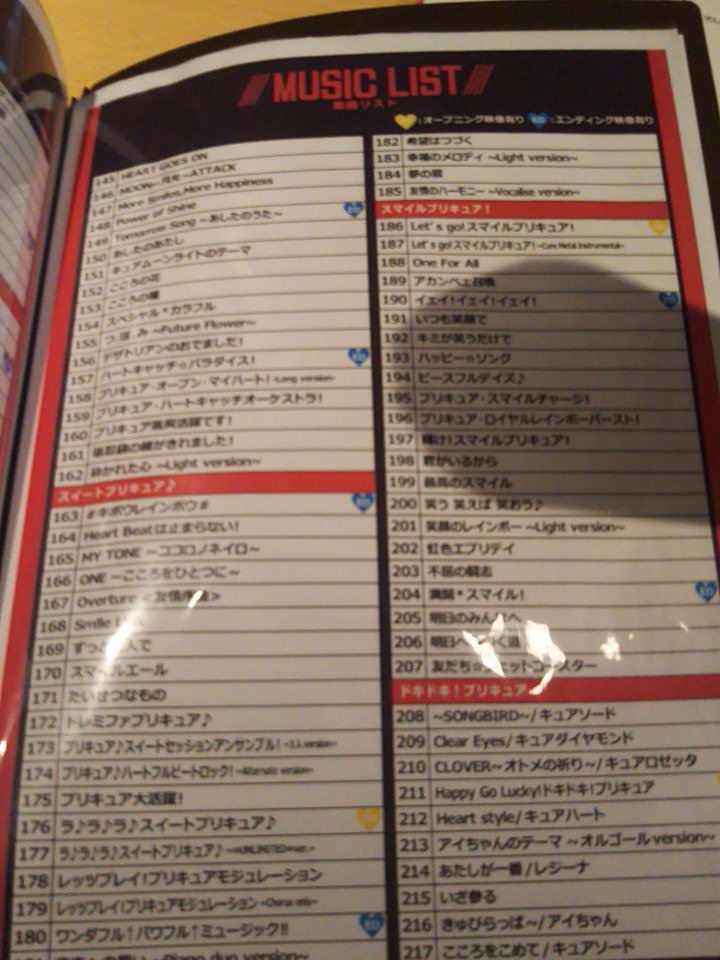 MUSIC LIST
楽曲リスト
OP:オープニング映像有り ED:エンディング映像有り
145 HEART GOES ON
146 MOON〜月光〜ATTACK
147 More Smiles,More Happiness
148 Power of Shine
149 Tomorrow Song 〜あしたのうた〜 ED
150 あしたのあたし
151 キュアムーンライトのテーマ
152 こころの花
153 こころの種
154 スペシャル*カラフル
155 つ・ぼ・み 〜Future Flower〜
156 デザトリアンのおでました!
157 ハートキャッチ☆パラダイス! ED
158 プリキュア・オープン・マイハート! 〜Long version〜
159 プリキュア・ハートキャッチオーケストラ!
160 プリキュア嵐爽活躍です!
161 堪忍袋の緒がきれました!
162 砕かれた心 〜Light version〜
スイートプリキュア♪
163 #キボウレインボウ# ED
164 Heart Beatは止まらない!
165 MY TONE 〜ココロノネイロ〜
166 ONE〜こころをひとつに〜
167 Overture
168 Smile
169 ずっと で
170 スマイルエール
171 たいせつなもの
172 ドレミファプリキュア♪
173 プリキュア♪スイートセッションアンサンブル!
174 プリキュア♪ハートフルビートロック! 〜Alternate version〜
175 プリキュア大活躍!
176 ラ♪ラ♪ラ♪スイートプリキュア♪ OP
177 ラ♪ラ♪ラ♪スイートプリキュア♪ 〜∞UNLIMITED∞ver.〜
178 レッツプレイ!プリキュアモジュレーション
179 レッツプレイ!プリキュアモジュレーション 〜Chorus only〜
180 ワンダフル↑パワフル↑ミュージック!! ED
〜Piano duo version〜
182 希望はつづく
183 幸福のメロディ 〜Light version〜
184 夢の扉
185 友情のハーモニー 〜Vocalise version〜
スマイルプリキュア!
186 Let's go!スマイルプリキュア! OP
187 Let's go!スマイルプリキュア! 〜Cure Metal Instrumental〜
188 One For All
189 アカンベェ召喚
190 イェイ!イェイ!イェイ! ED
191 いつも笑顔で
192 キミが笑うだけで
193 ハッピー☆ソング
194 ピースフルデイズ♪
195 プリキュア・スマイルチャージ!
196 プリキュア・ロイヤルレインボーバースト!
197 輝け!スマイルプリキュア!
198 君がいるから
199 最高のスマイル
200 笑う 笑えば 笑おう♪
201 笑顔のレインボー 〜Light version〜
202 虹色エブリデイ
203 不屈の闘志
204 満開*スマイル! ED
205 明日のみん へ
206 明日へ 道
207 友だち☆ジェットコースター
ドキドキ!プリキュア
208 〜SONGBIRD〜/キュアソード
209 Clear Eyes/キュアダイヤモンド
210 CLOVER〜オトメの祈り〜/キュアロゼッタ
211 Happy Go Lucky!ドキドキ!プリキュア
212 Heart style/キュアハート
213 アイちゃんのテーマ 〜オルゴールversion〜
214 あたしが一番/レジーナ
215 いざ参る
216 きゅぴらっぱ〜/アイちゃん
217 こころをこめて/キュアソード